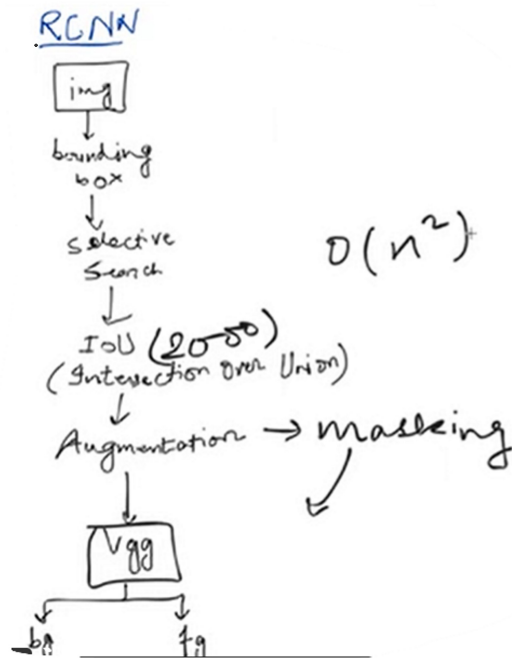 RCNN
img
bounding
box
Selective
Search
O(n²)
IoU (2000)
(Intersection over Union)
Augmentation → masking
Vgg
bg fg